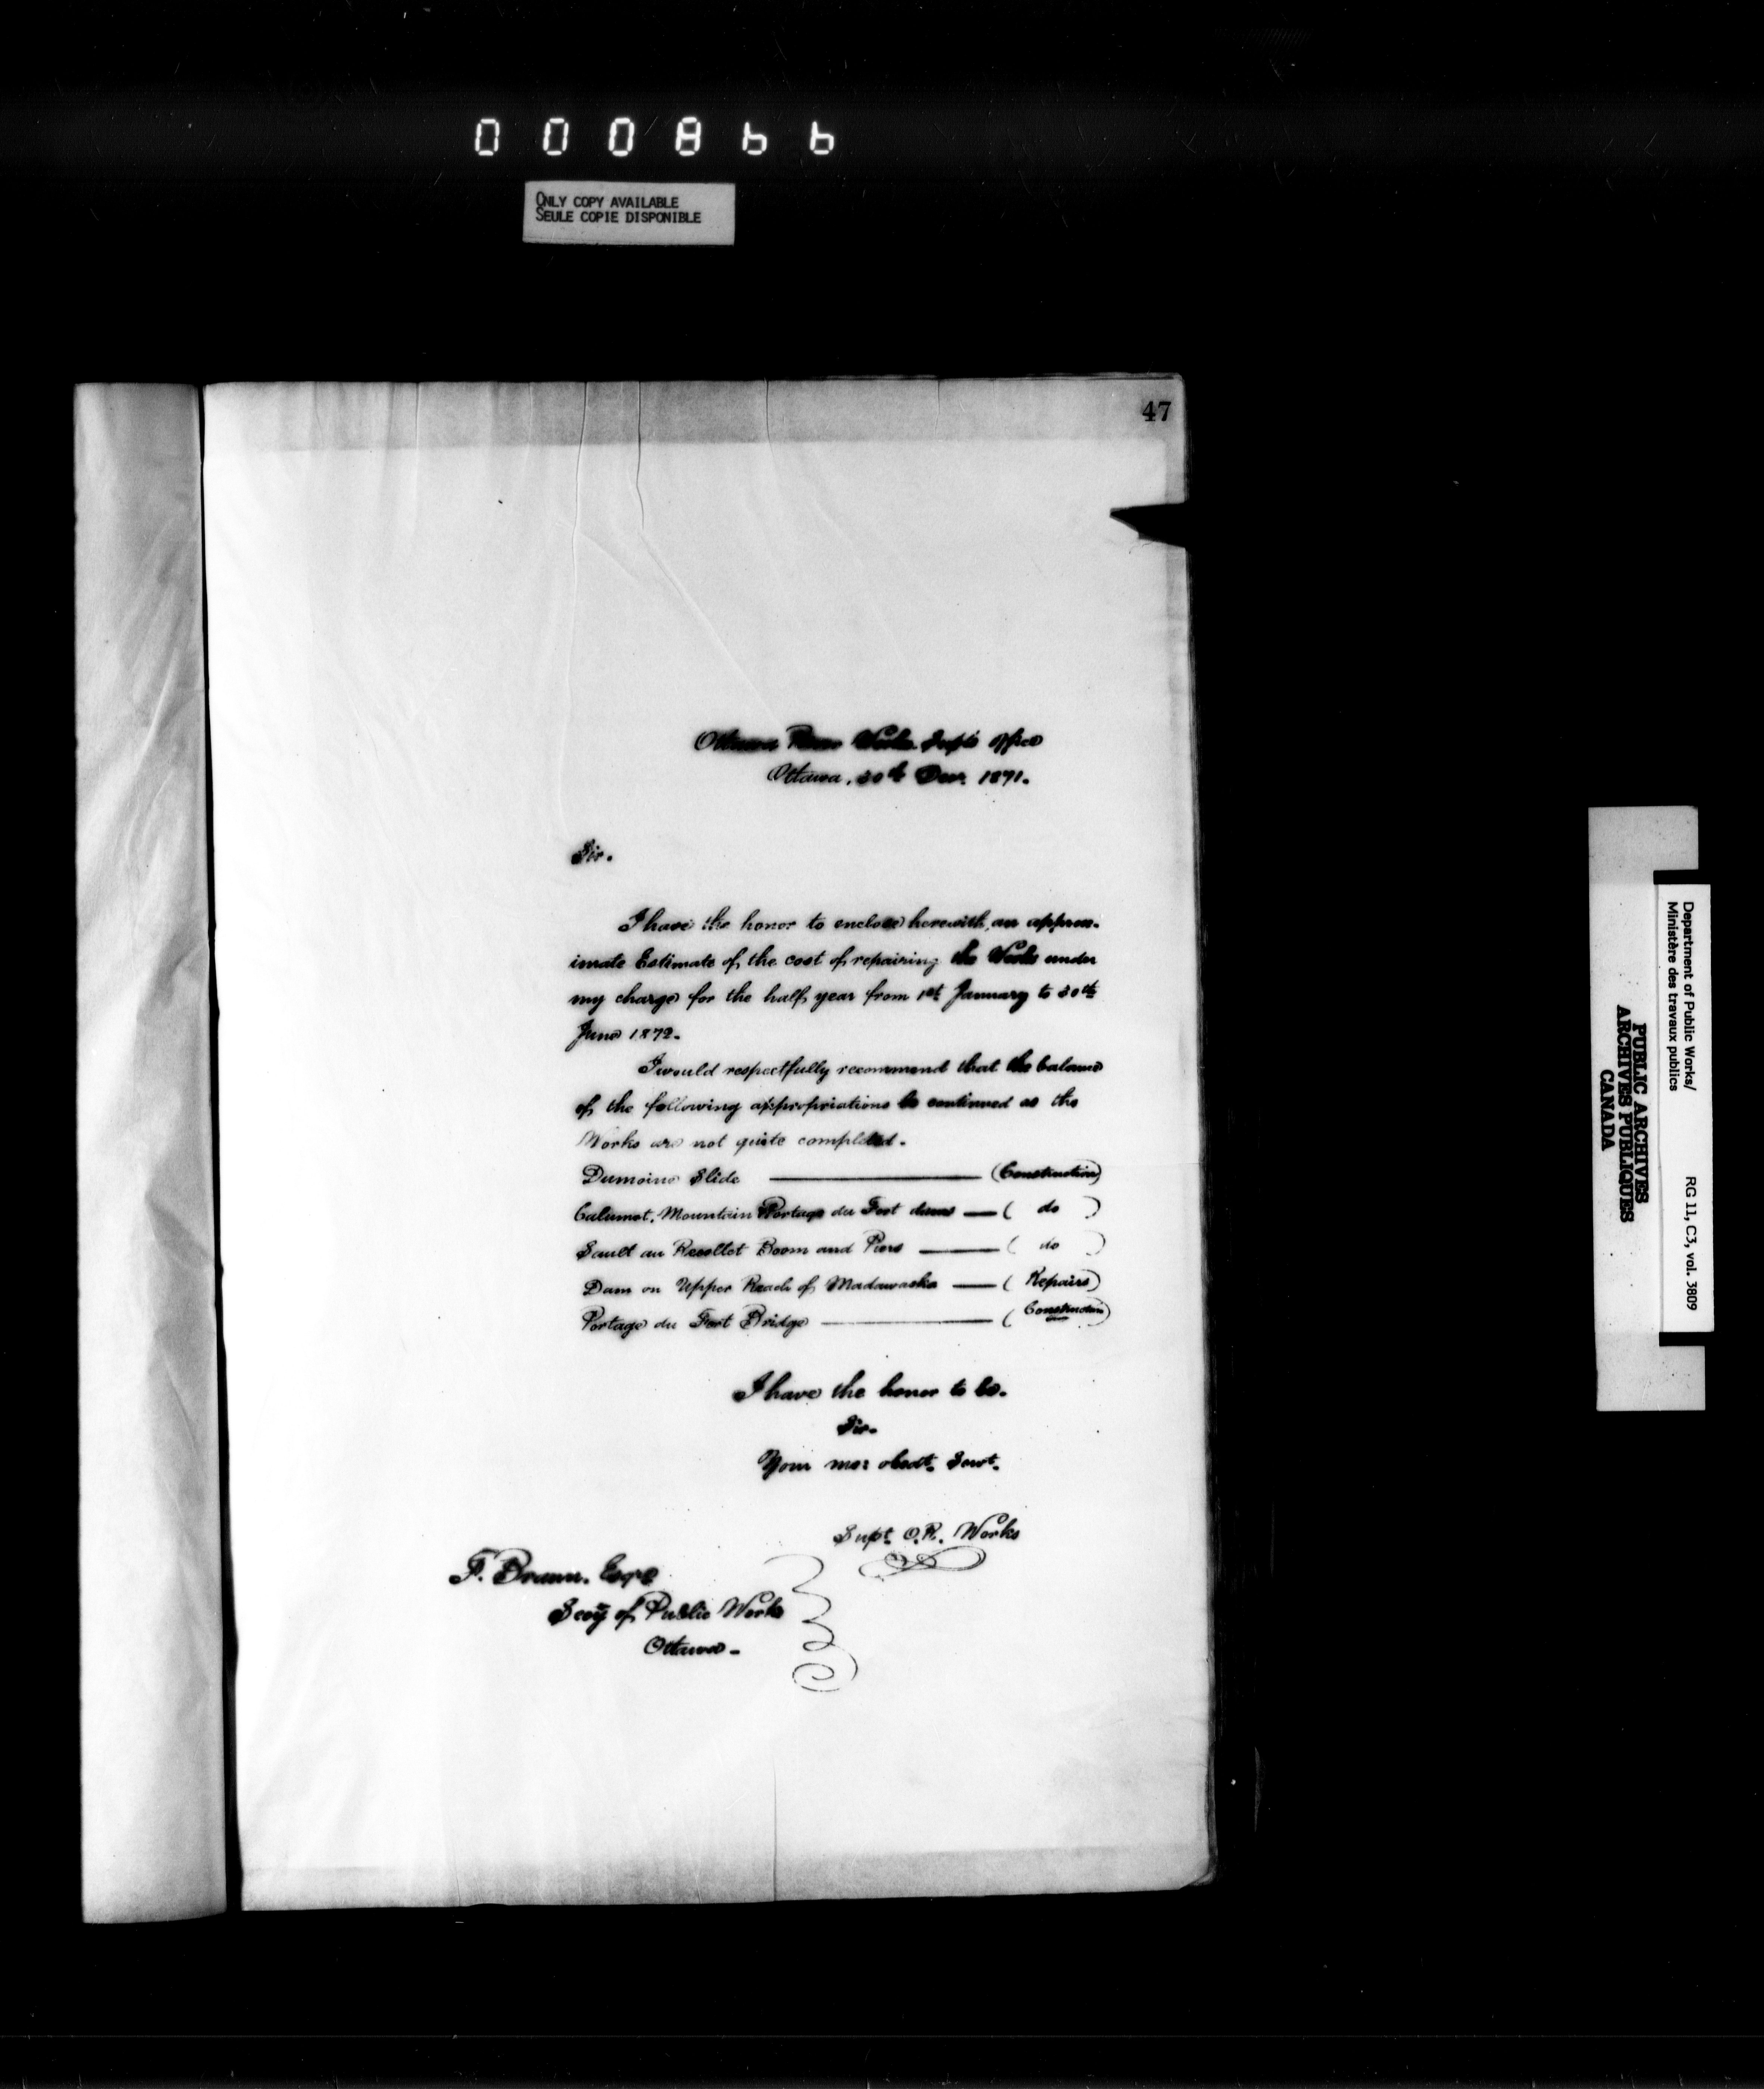 000866
ONLY COPY AVAILABLE
SEULE COPIE DISPONIBLE
47
Ottawa River Works. Supt's Office
Ottawa, 30th Decr. 1871.
Sir.
I have the honor to enclose herewith, an approx-
imate Estimate of the cost of repairing the Works under
my charge for the half year from 1st January to 30th
June 1872.
I would respectfully recommend that the balance
of the following appropriations be continued as the
Works are not quite completed.
Dumoine Slide (Construction)
Calumet, Mountain Portage du Fort dams ( do )
Sault au Recollet Boom and Piers ( do )
Dam on Upper Reach of Madawaska (Repairs)
Portage du Fort Bridge (Construction)
I have the honor to be.
Sir.
Your mo: obedt. Servt.
Supt. O.R. Works
F. Braun. Esqre
Secy of Public Works
Ottawa -
Department of Public Works/
Ministère des travaux publics
RG 11, C3, vol. 3809
PUBLIC ARCHIVES
ARCHIVES PUBLIQUES
CANADA